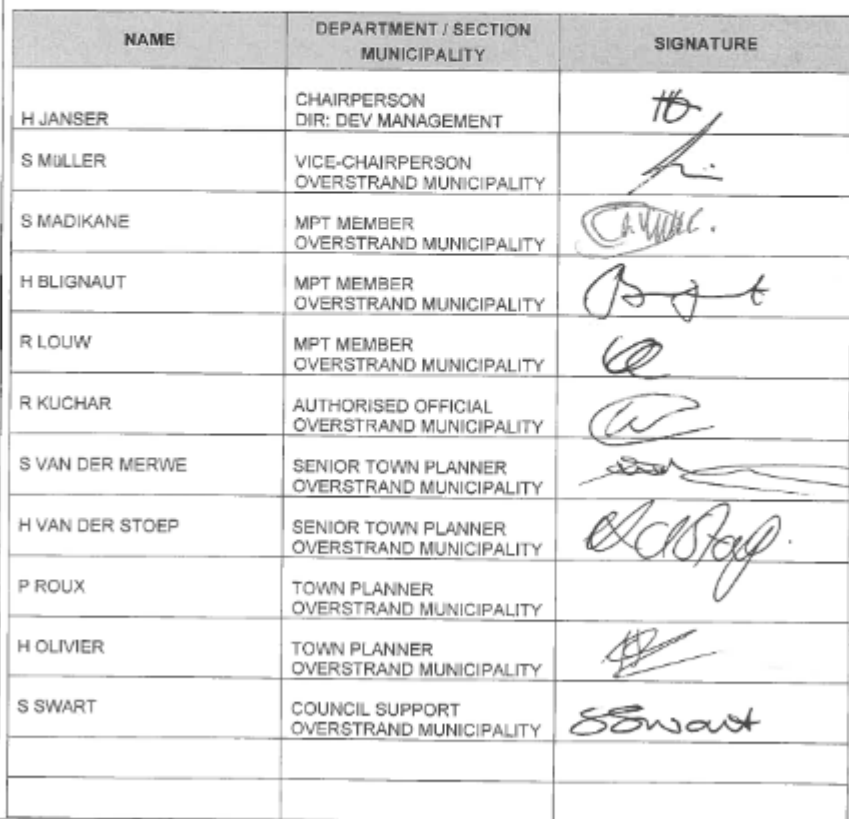 NAME DEPARTMENT / SECTION MUNICIPALITY SIGNATURE
H JANSER CHAIRPERSON
DIR: DEV MANAGEMENT
S MüLLER VICE-CHAIRPERSON
OVERSTRAND MUNICIPALITY
S MADIKANE MPT MEMBER
OVERSTRAND MUNICIPALITY
H BLIGNAUT MPT MEMBER
OVERSTRAND MUNICIPALITY
R LOUW MPT MEMBER
OVERSTRAND MUNICIPALITY
R KUCHAR AUTHORISED OFFICIAL
OVERSTRAND MUNICIPALITY
S VAN DER MERWE SENIOR TOWN PLANNER
OVERSTRAND MUNICIPALITY
H VAN DER STOEP SENIOR TOWN PLANNER
OVERSTRAND MUNICIPALITY
P ROUX TOWN PLANNER
OVERSTRAND MUNICIPALITY
H OLIVIER TOWN PLANNER
OVERSTRAND MUNICIPALITY
S SWART COUNCIL SUPPORT
OVERSTRAND MUNICIPALITY SSwart